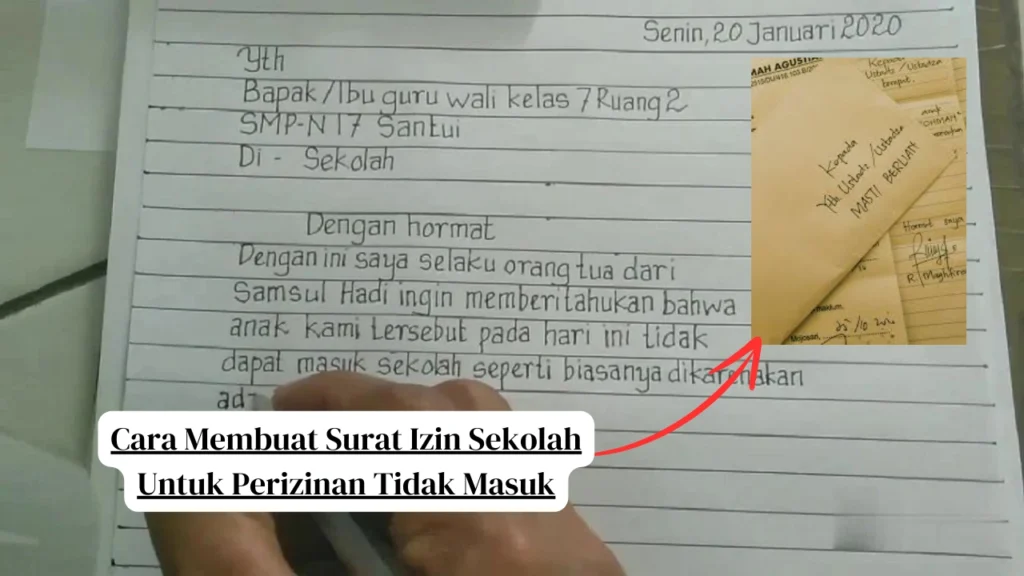 Senin, 20 Januari 2020
Yth
Bapak/Ibu guru wali kelas 7 Ruang 2
SMP-N 17 Santui
Di - Sekolah
Dengan hormat
Dengan ini saya selaku orang tua dari
Samsul Hadi ingin memberitahukan bahwa
anak kami tersebut pada hari ini tidak
dapat masuk sekolah seperti biasanya dikarenakan
Cara Membuat Surat Izin Sekolah
Untuk Perizinan Tidak Masuk
MAH AGUSTI
Kepada
Ustadz /Ustadza
Kepada
Yth Ustadz /Ustadza
MASTI BERLIAN
Hormat saya